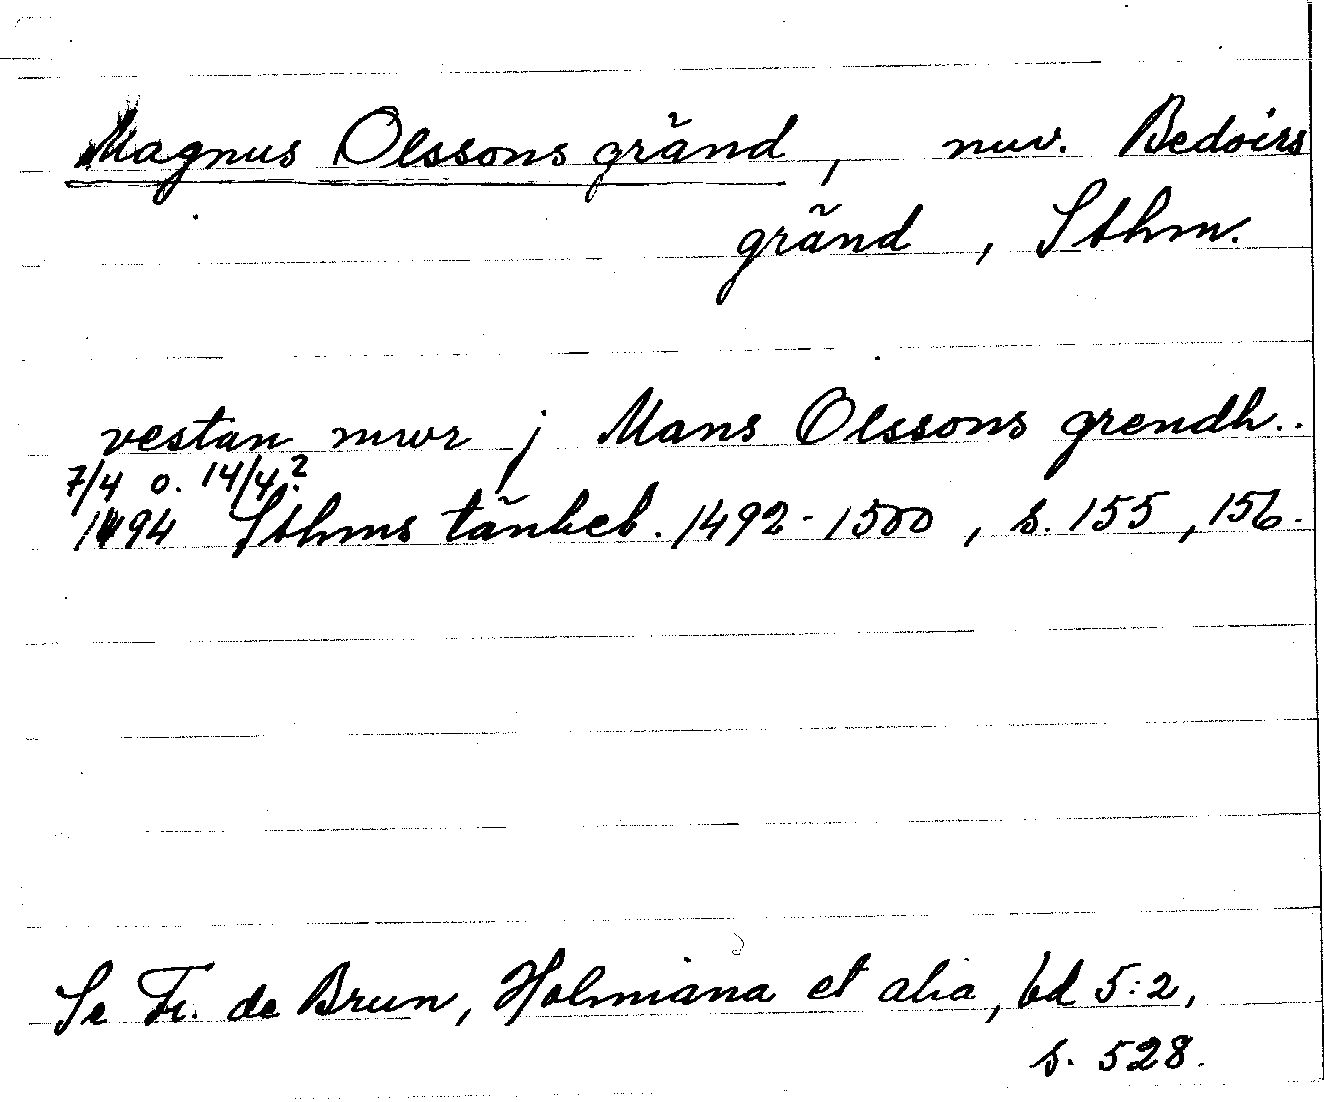 Magnus Olssons gränd, nuv. Bedoirs
gränd, Sthm.
vestan mwr j Mans Olssons grendh..
7/4 o. 14/4?
1494 Sthms tänkeb. 1492-1500, s. 155, 156.
Se Fr. de Brun, Holmiana et alia, bd 5:2,
s. 528.